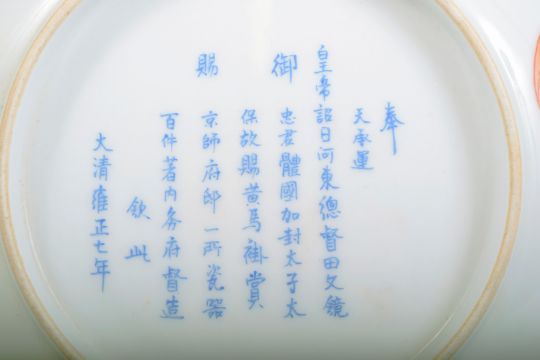 奉
天承運
皇帝詔日河東總督田文鏡
忠君體國加封太子太
御
保故賜黃馬褂賞
賜
京師府邸一所瓷器
百件著內务府督造
欽此
大清雍正七年